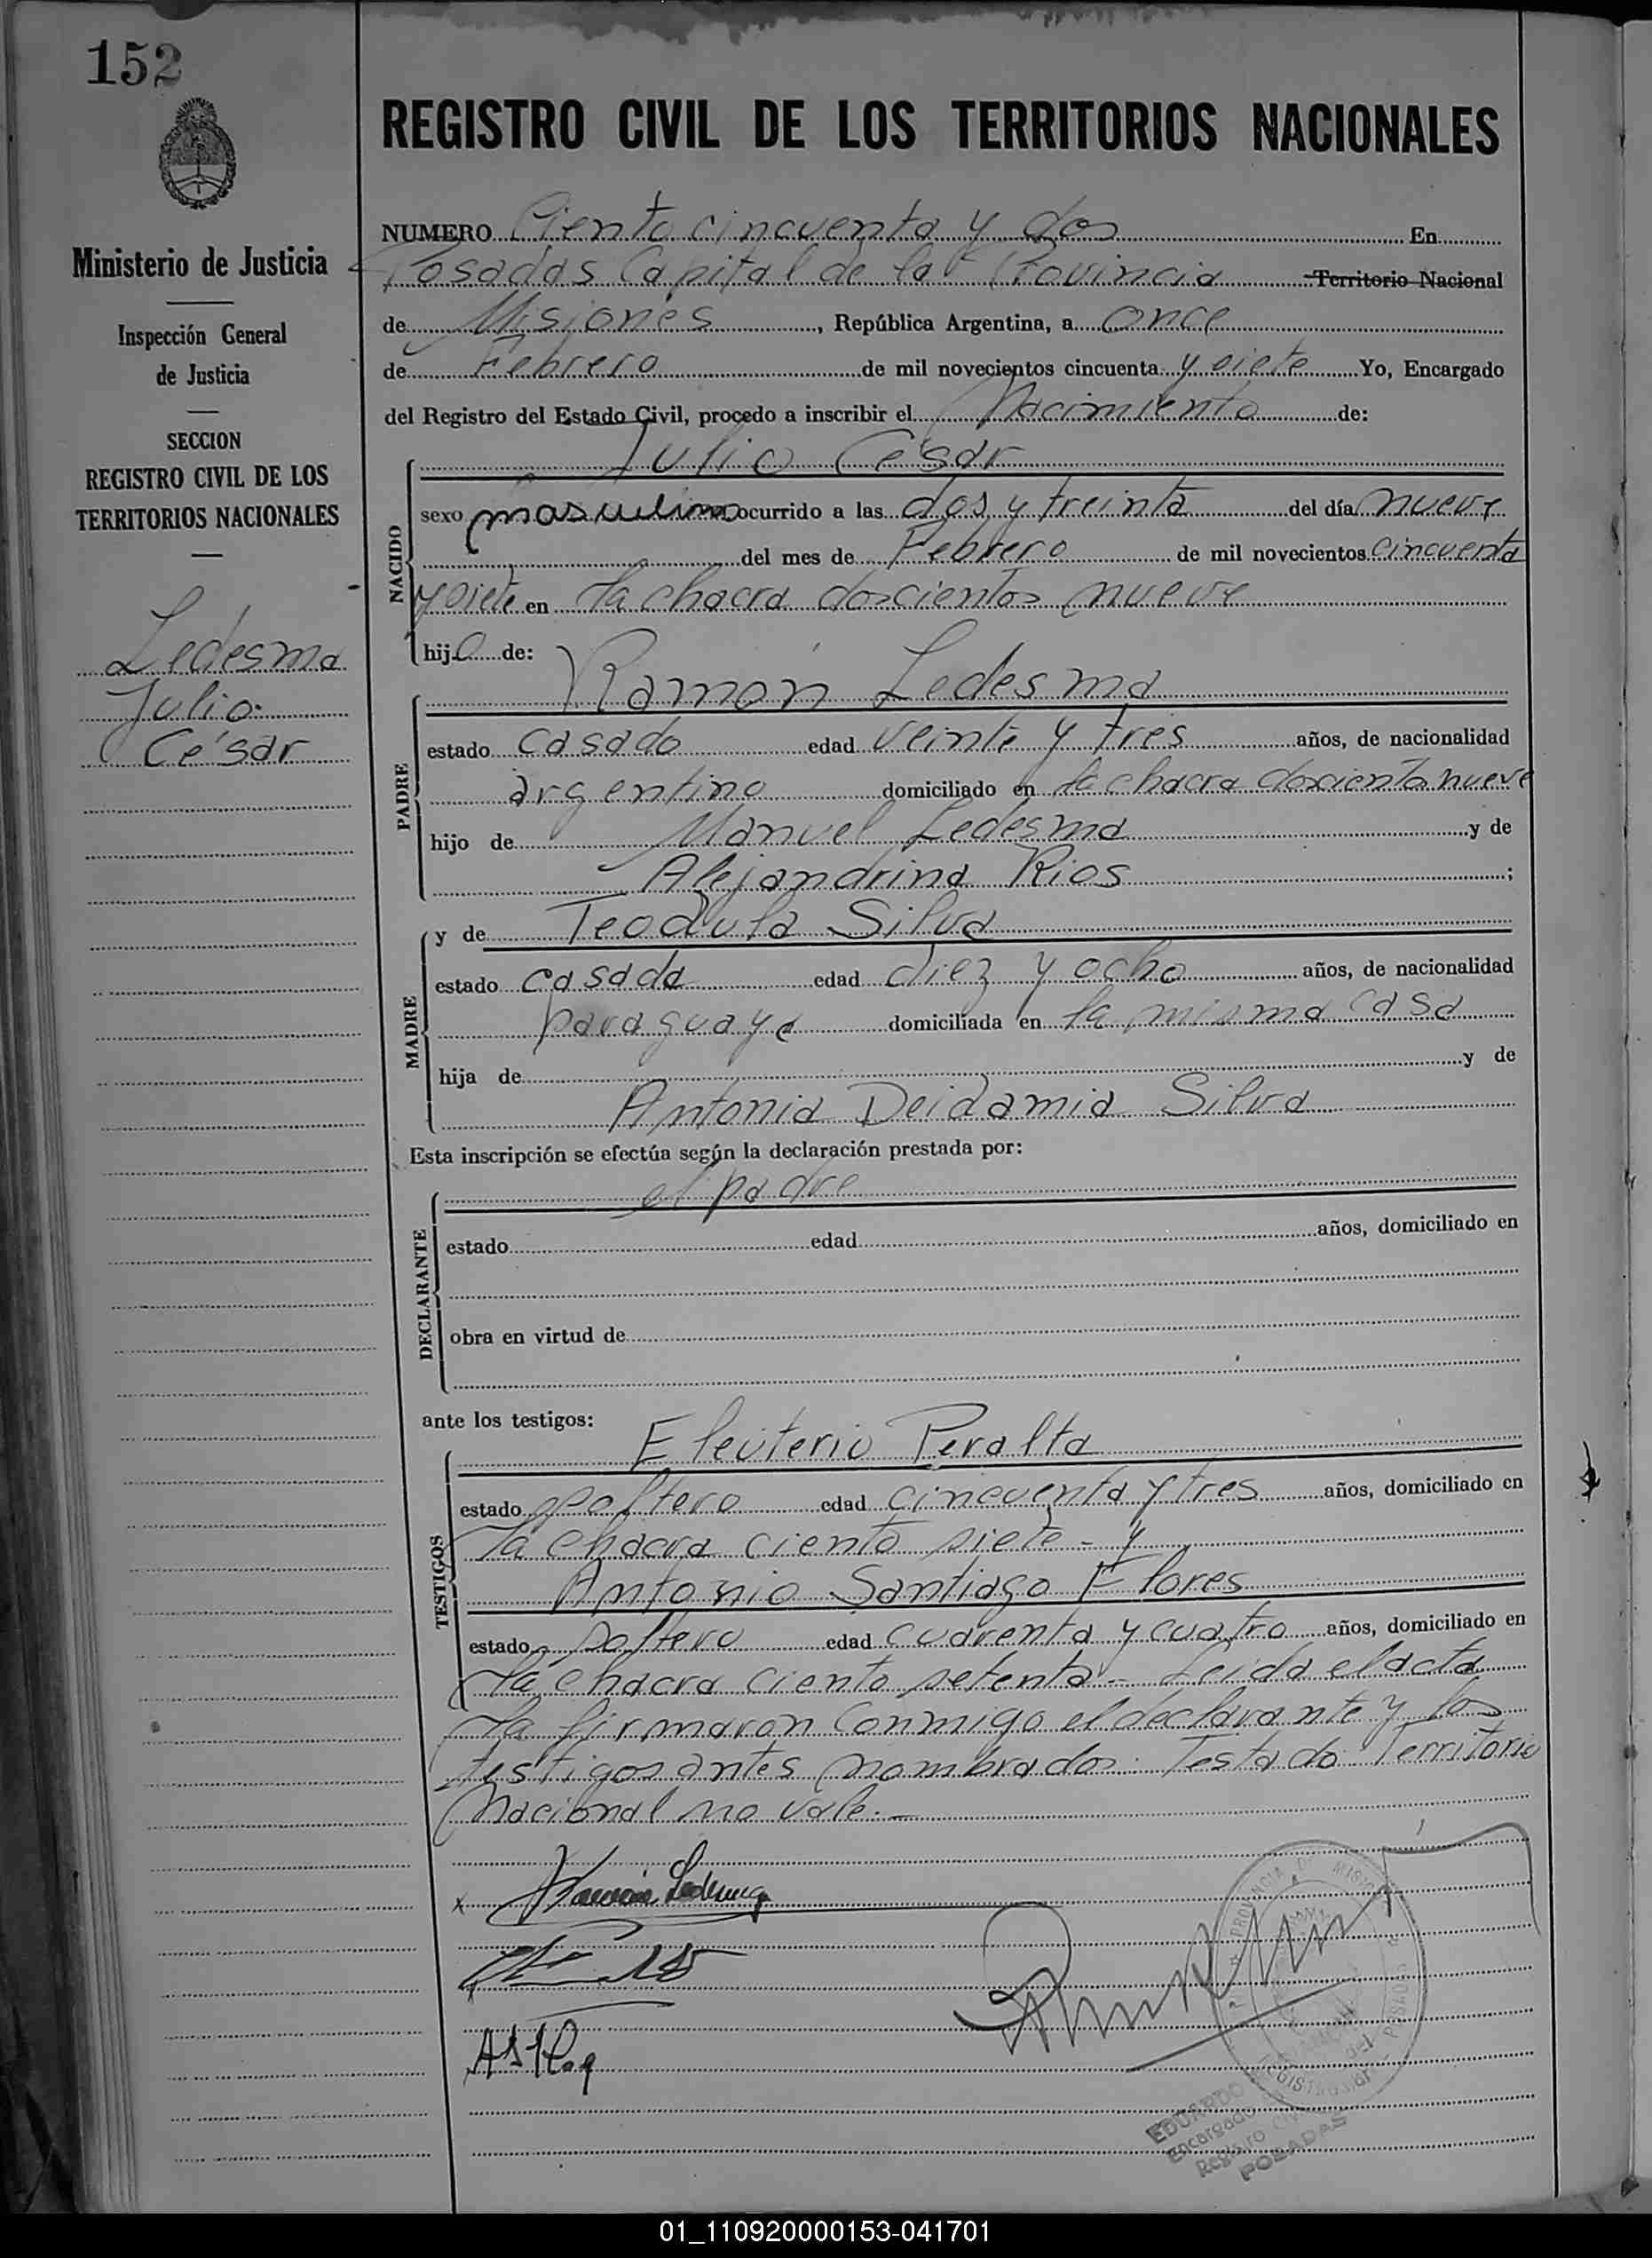 152
REGISTRO CIVIL DE LOS TERRITORIOS NACIONALES
Ministerio de Justicia
Inspección General
de Justicia
SECCION
REGISTRO CIVIL DE LOS
TERRITORIOS NACIONALES
Ledesma
Julio
César
NUMERO Ciento cincuenta y dos En
Posadas Capital de la Provincia Territorio Nacional
de Misiones, República Argentina, a once
de Febrero de mil novecientos cincuenta y siete Yo, Encargado
del Registro del Estado Civil, procedo a inscribir el Nacimiento de:
NACIDO
Julio César
sexo masculino ocurrido a las dos y treinta del día nueve
del mes de Febrero de mil novecientos cincuenta
y siete en la chacra doscientos nueve
hijo de:
PADRE
Ramón Ledesma
estado casado edad veinte y tres años, de nacionalidad
argentino domiciliado en la chacra doscientos nueve
hijo de Manuel Ledesma y de
Alejandrina Rios;
MADRE
y de Teodula Silva
estado casada edad diez y ocho años, de nacionalidad
paraguaya domiciliada en la misma casa
hija de y de
Antonia Deidamia Silva
Esta inscripción se efectúa según la declaración prestada por:
DECLARANTE
el padre
estado edad años, domiciliado en
obra en virtud de
ante los testigos:
TESTIGOS
Eleuterio Peralta
estado soltero edad cincuenta y tres años, domiciliado en
la chacra ciento siete - y
Antonio Santiago Flores
estado soltero edad cuarenta y cuatro años, domiciliado en
la chacra ciento setenta - Leida el acta
la firmaron conmigo el declarante y los
testigos antes nombrados. Testado: Territorio
Nacional no vale.-
x Ramón Ledesma
PROVINCIA DE MISIONES
POSADAS
EDUARDO
Encargado del
Registro Civil
POSADAS
01_110920000153-041701